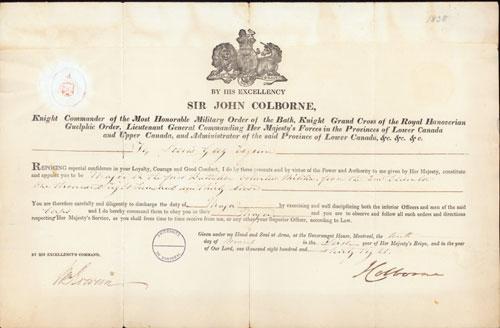 1838
BY HIS EXCELLENCY
SIR JOHN COLBORNE,
Knight Commander of the Most Honorable Military Order of the Bath, Knight Grand Cross of the Royal Hanoverian
Guelphic Order, Lieutenant General Commanding Her Majesty's Forces in the Provinces of Lower Canada
and Upper Canada, and Administrator of the said Province of Lower Canada, &c. &c. &c.
To
REPOSING especial confidence in your Loyalty, Courage and Good Conduct, I do by these presents and by virtue of the Power and Authority to me given by Her Majesty, constitute
and appoint you to be Major
one thousand eight hundred and thirty seven
You are therefore carefully and diligently to discharge the duty of Major by exercising and well disciplining both the inferior Officers and men of the said
Corps and I do hereby command them to obey you as their Major and you are to observe and follow all such orders and directions
respecting Her Service, as you shall from time to time receive from me, or any other your Superior Officer, according to Law.
Given under my Hand and Seal at Arms, at the Government House, Montreal, the
day of in the First year of Her Majesty's Reign, and in the year
of Our Lord, one thousand eight hundred and thirty eight.
BY HIS EXCELLENCY'S COMMAND,
J Colborne